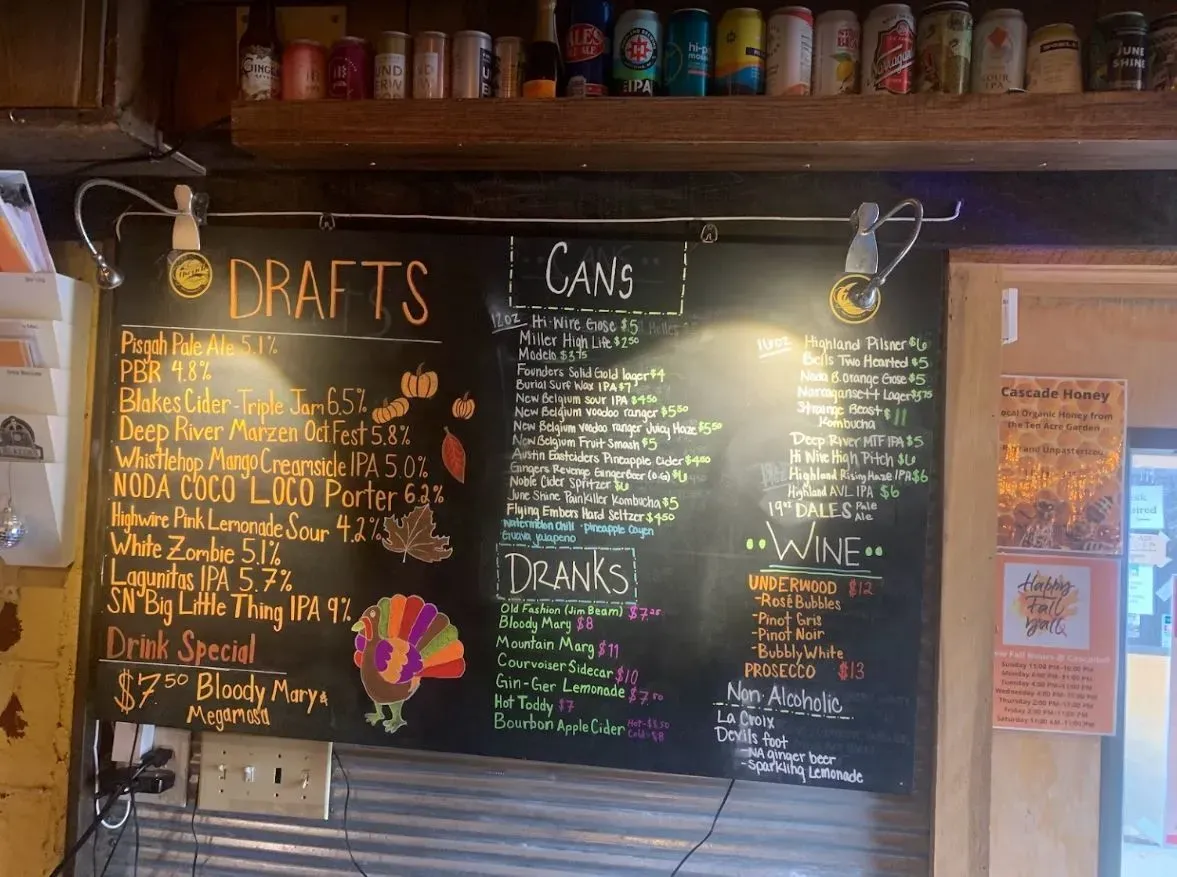 GINGER
ALES
IPA
hi-p
Narragansett
SOUR
IPA
JUNE
SHINE
DRAFTS
Pisgah Pale Ale 5.1%
PBR 4.8%
Blakes Cider-Triple Jam 6.5%
Deep River Marzen Oct Fest 5.8%
Whistlehop Mango Creamsicle IPA 5.0%
NODA COCO LOCO Porter 6.2%
Highwire Pink Lemonade Sour 4.2%
White Zombie 5.1%
Lagunitas IPA 5.7%
SN Big Little Thing IPA 9%
Drink Special
$7.50 Bloody Mary &
Megamosa
CANS
12oz Hi-Wire Gose $5
Miller High Life $2.50
Modelo $3.75
Founders Solid Gold lager $4
Burial Surf Wax IPA $7
New Belgium sour IPA $4.50
New Belgium voodoo ranger $5.50
New Belgium voodoo ranger Juicy Haze $5.50
New Belgium Fruit Smash $5
Austin Eastciders Pineapple Cider $4.00
Gingers Revenge Gingerbeer (O.G) $6
Noble Cider Spritzer $6
June Shine Painkiller Kombucha $5
Flying Embers Hard Seltzer $4.50
Watermelon Chili - pineapple cayen
Guava jalapeno
DRANKS
Old Fashion (Jim Beam) $7.25
Bloody Mary $8
Mountain Marg $11
Courvoiser Sidecar $10
Gin-Ger Lemonade $7.50
Hot Toddy $7
Bourbon Apple Cider Hot-$8.50
Cold-$8
16oz Highland Pilsner $6
Bells Two Hearted $5
Noda B.Orange Gose $5
Narragansett Lager $3.75
Strange Beast $11
Kombucha
Deep River MTF IPA $5
Hi Wire High Pitch $6
Highland Rising Haze IPA $6
Highland AVL IPA $6
19oz DALES Pale
Ale
WINE
UNDERWOOD $12
-Rosé Bubbles
-Pinot Gris
-Pinot Noir
-Bubbly White
PROSECCO $13
Non-Alcoholic
La Croix
Devils foot
-NA ginger beer
-Sparkling Lemonade
Cascade Honey
Local Organic Honey from
the Ten Acre Garden
Raw and Unpasteurized
Happy
Fall
Y'all
New Fall Hours @ Cascade!